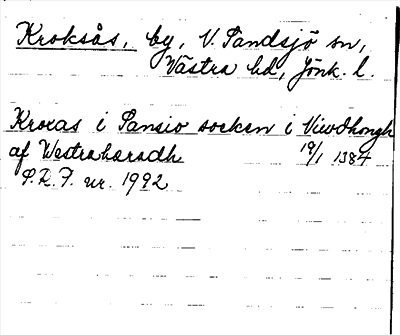 Kroksås, by, V. Sandsjö sn,
Västra hd, Jönk. l.
Krocas i Sansio socken i Viwdhongh
af Westrahæradh 19/1 1384
S.R.P. nr. 1992